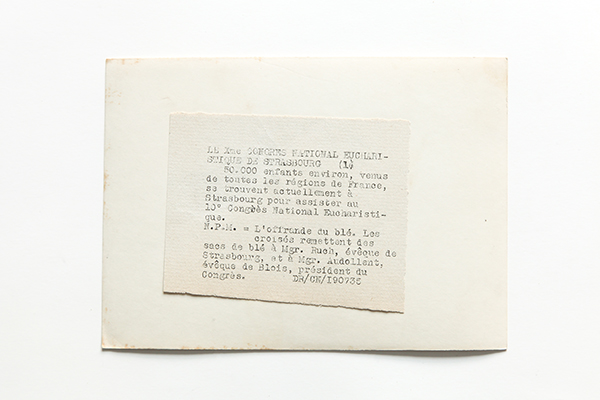 LE Xme CONGRES NATIONAL EUCHARI-
STIQUE DE STRASBOURG (1)
50.000 enfants environ, venus
de toutes les régions de France,
se trouvent actuellement à
Strasbourg pour assister au
10° Congrès National Eucharisti-
que.
N.P.M. = L'offrande du blé. Les
croisés remettent des
sacs de blé à Mgr. Ruch, évêque de
Strasbourg, et à Mgr. Audollent,
évêque de Blois, président du
Congrès. DR/CE/190735